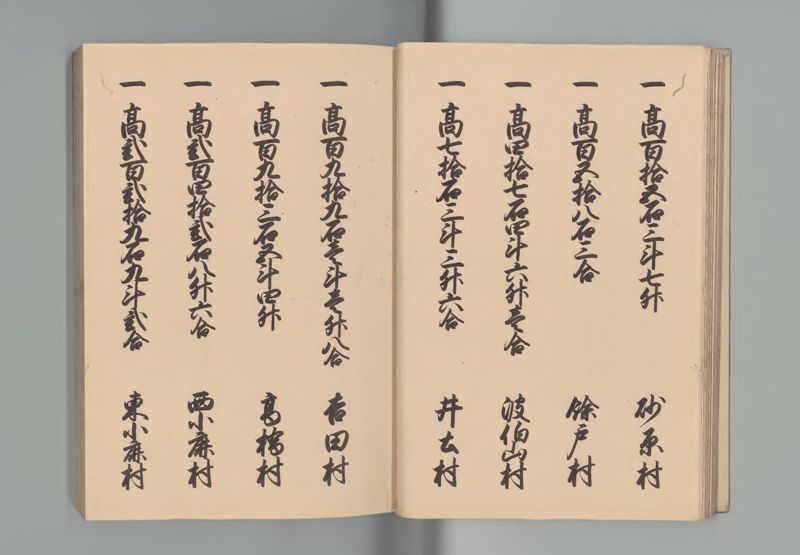 一 高百拾五石三斗七升 砂原村
一 高百五拾八石三合 餘戸村
一 高四拾七石四斗六升壱合 波伯山村
一 高七拾石三斗三升六合 井土村
一 高百九拾九石壱斗壱升八合 吉田村
一 高百九拾三石五斗四升 高橋村
一 高弐百四拾弐石八升六合 西小麻村
一 高弐百弐拾九石九斗弐合 東小麻村